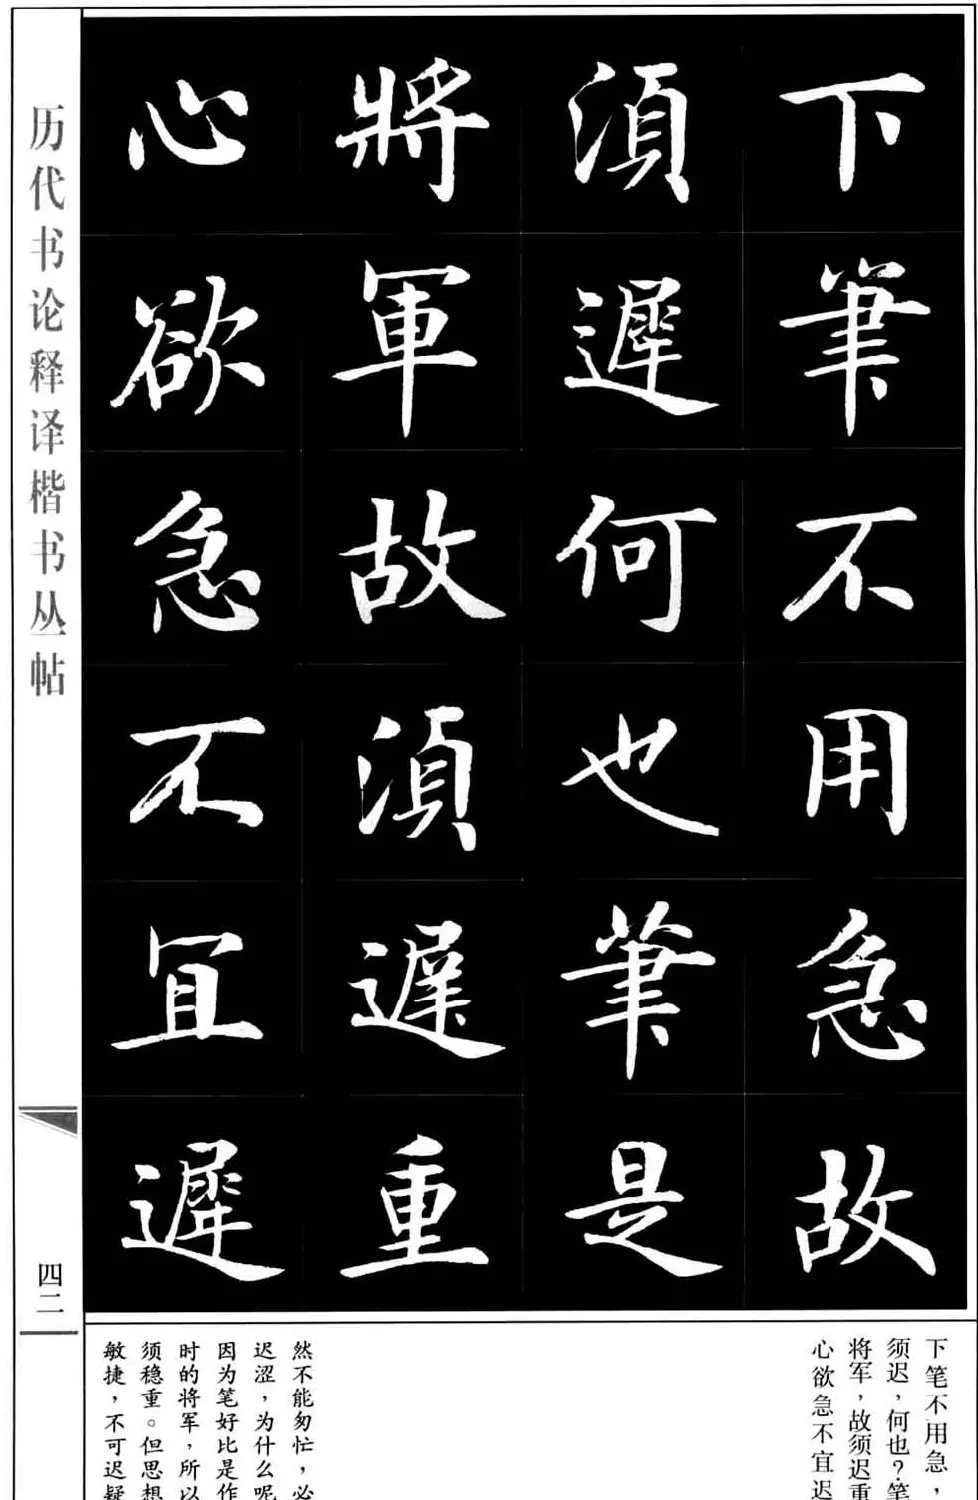 下筆不用急故
湏遲何也筆是
將軍故湏遲重
心欲急不冝遲
历代书论释译楷书丛帖
四二
下笔不用急，
须迟，何也？笔
将军，故须迟重
心欲急不宜迟
然不能匆忙，必
迟涩，为什么呢
因为笔好比是作
时的将军，所以
须稳重。但思想
敏捷，不可迟疑